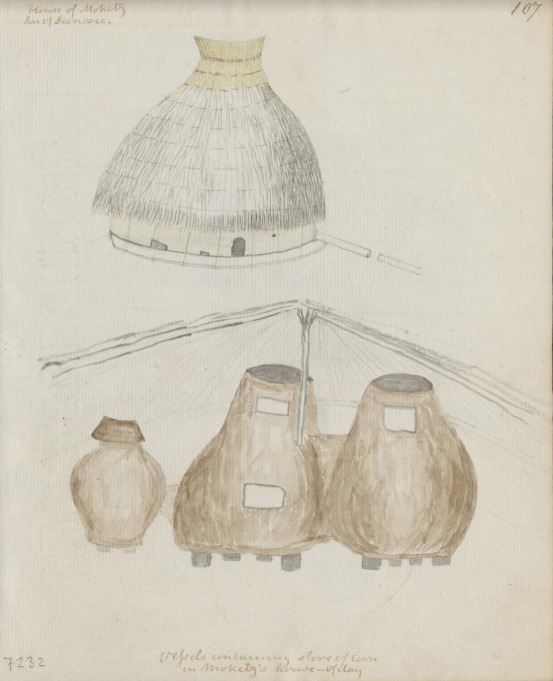 House of Moketz
Son of
107
Vessels containing store of corn
in Moketz's House - of clay
7232